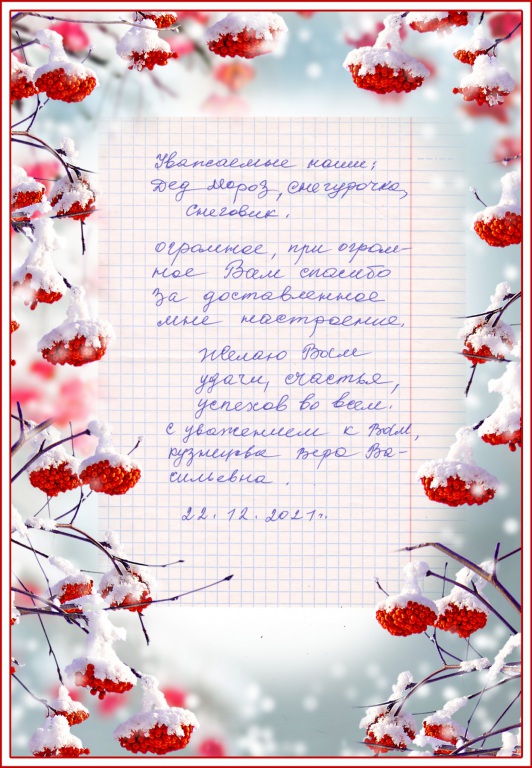 Уважаемые наши:
Дед Мороз, Снегурочка,
Снеговик.
огромное, при огром-
ное Вам спасибо
за доставленное
мне настроение.
Желаю Вам
удачи, счастья,
успехов во всем.
с уважением к Вам,
кузнецова Вера Ва-
сильевна.
22.12.2021г.